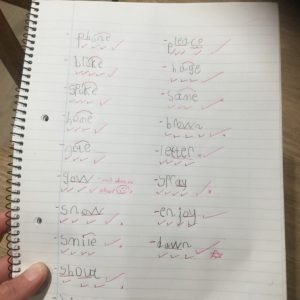 - phone
- bike
- spike
- home
- note
- yow
- snow
- smile
- shout
- pleace
- huge
- same
- brown
- letter
- spray
- enjoy
- down